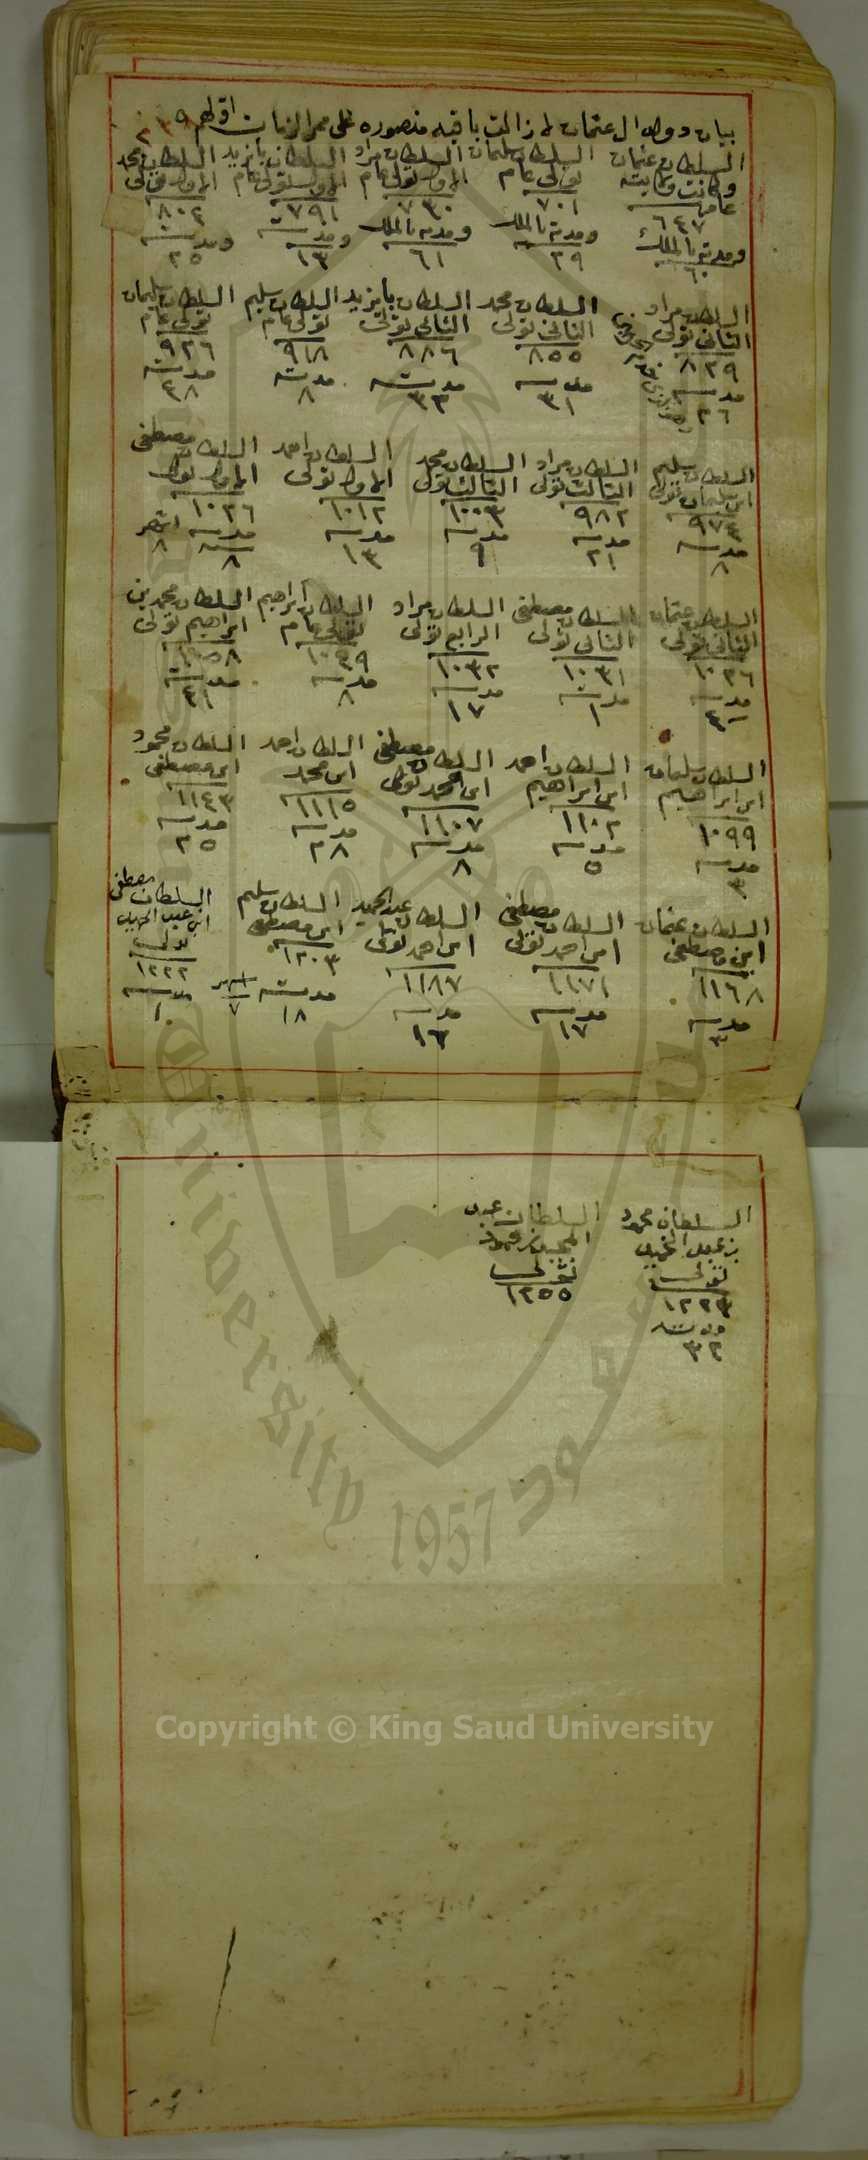 بيان دول ال عثمان لا زالت باقيه منصوره على ممر الزمان اولهم
٢٣٩
السلطان عثمان
وكانت ولايته
عام
٦٤٧
ومدته بالملك
٦٠
السلطان سليمان
تولى عام
٧٠١
ومدته بالملك
٢٩
السلطان مراد
الاول تولى عام
٧٣٠
ومدته بالملك
٦١
السلطان بايزيد
الاول تولى عام
٧٩١
ومدته
١٣
السلطان محمد
الاول تولى
٨٠٢
ومدته
٢٥
السلطان مراد
الثاني تولى
٨٢٩
مدته
٢٦
السلطان محمد
الثاني تولى
٨٥٥
مدته
٣١
السلطان بايزيد
الثاني تولى
٨٨٦
مدته
٣٣
السلطان سليم
تولى عام
٩١٨
مدته
٨
السلطان سليمان
تولى عام
٩٢٦
مدته
٤٨
السلطان سليم
ابن سليمان تولى
٩٧٤
مدته
٨
السلطان مراد
الثالث تولى
٩٨٢
مدته
٢١
السلطان محمد
الثالث تولى
١٠٠٣
مدته
٩
السلطان احمد
الاول تولى
١٠١٢
مدته
١٣
السلطان مصطفى
الاول تولى
١٠٢٦
مدته اشهر
٨ ٨
السلطان عثمان
الثاني تولى
١٠٢٦
مدته
٤
السلطان مصطفى
الثاني تولى
١٠٣١
مدته
١
السلطان مراد
الرابع تولى
١٠٣٢
مدته
١٧
السلطان ابراهيم
تولى عام
١٠٤٩
مدته
٨
السلطان محمد بن
ابراهيم تولى
١٠٥٨
مدته
٤١
السلطان سليمان
ابن ابراهيم
١٠٩٩
مدته
٣
السلطان احمد
ابن ابراهيم
١١٠٢
مدته
٥
السلطان مصطفى
ابن محمد تولى
١١٠٧
مدته
٨
السلطان احمد
ابن محمد
١١١٥
مدته
٢٨
السلطان محمود
ابن مصطفى
١١٤٣
مدته
٢٥
السلطان عثمان
ابن مصطفى
١١٦٨
مدته
٣
السلطان مصطفى
ابن احمد تولى
١١٧١
مدته
١٧
السلطان عبد الحميد
ابن احمد تولى
١١٨٧
مدته
١٦
السلطان سليم
ابن مصطفى
١٢٠٣
مدته اشهر
١٨ ٧
السلطان مصطفى
ابن عبد الحميد
تولى
١٢٢٢
مدته
١
السلطان محمود
بن عبد الحميد
تولى
١٢٢٣
ومدته
٣٢
السلطان عبد
المجيد بن محمود
تولى
١٢٥٥
University
1957
Copyright © King Saud University